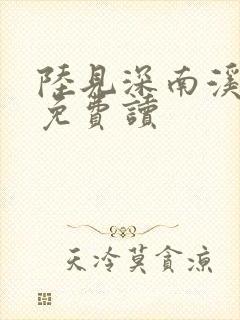 陸見深南溪
免費讀
天冷莫貪涼